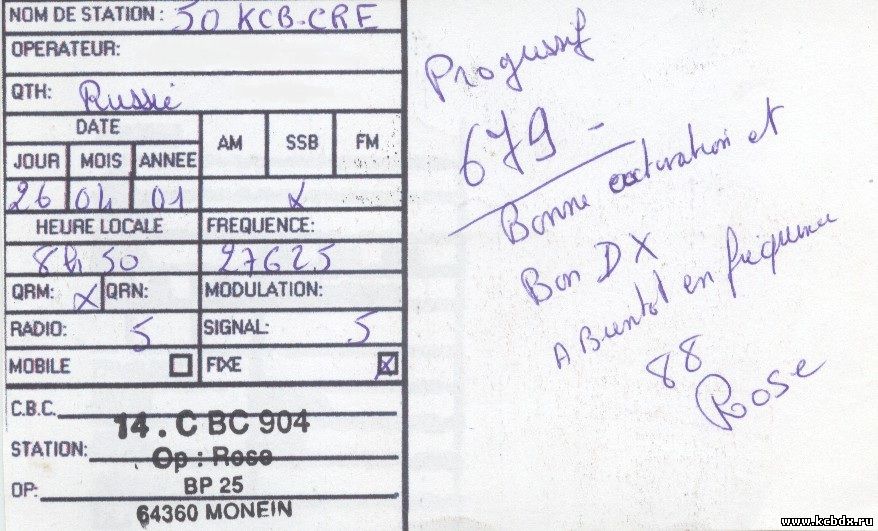 NOM DE STATION : 50 KCB-CRE
OPERATEUR:
QTH: Russie
DATE
JOUR MOIS ANNEE AM SSB FM
26 04 01 X
HEURE LOCALE FREQUENCE:
8h 50 27625
QRM: X QRN: MODULATION:
RADIO: 5 SIGNAL: 5
MOBILE FIXE X
C.B.C.
14 . C BC 904
STATION:
Op : Rose
OP: BP 25
64360 MONEIN
Progressif
679 -
Bonne continuation et
Bon DX
A Bientot en fréquence
88
Rose
www.kcbdx.ru